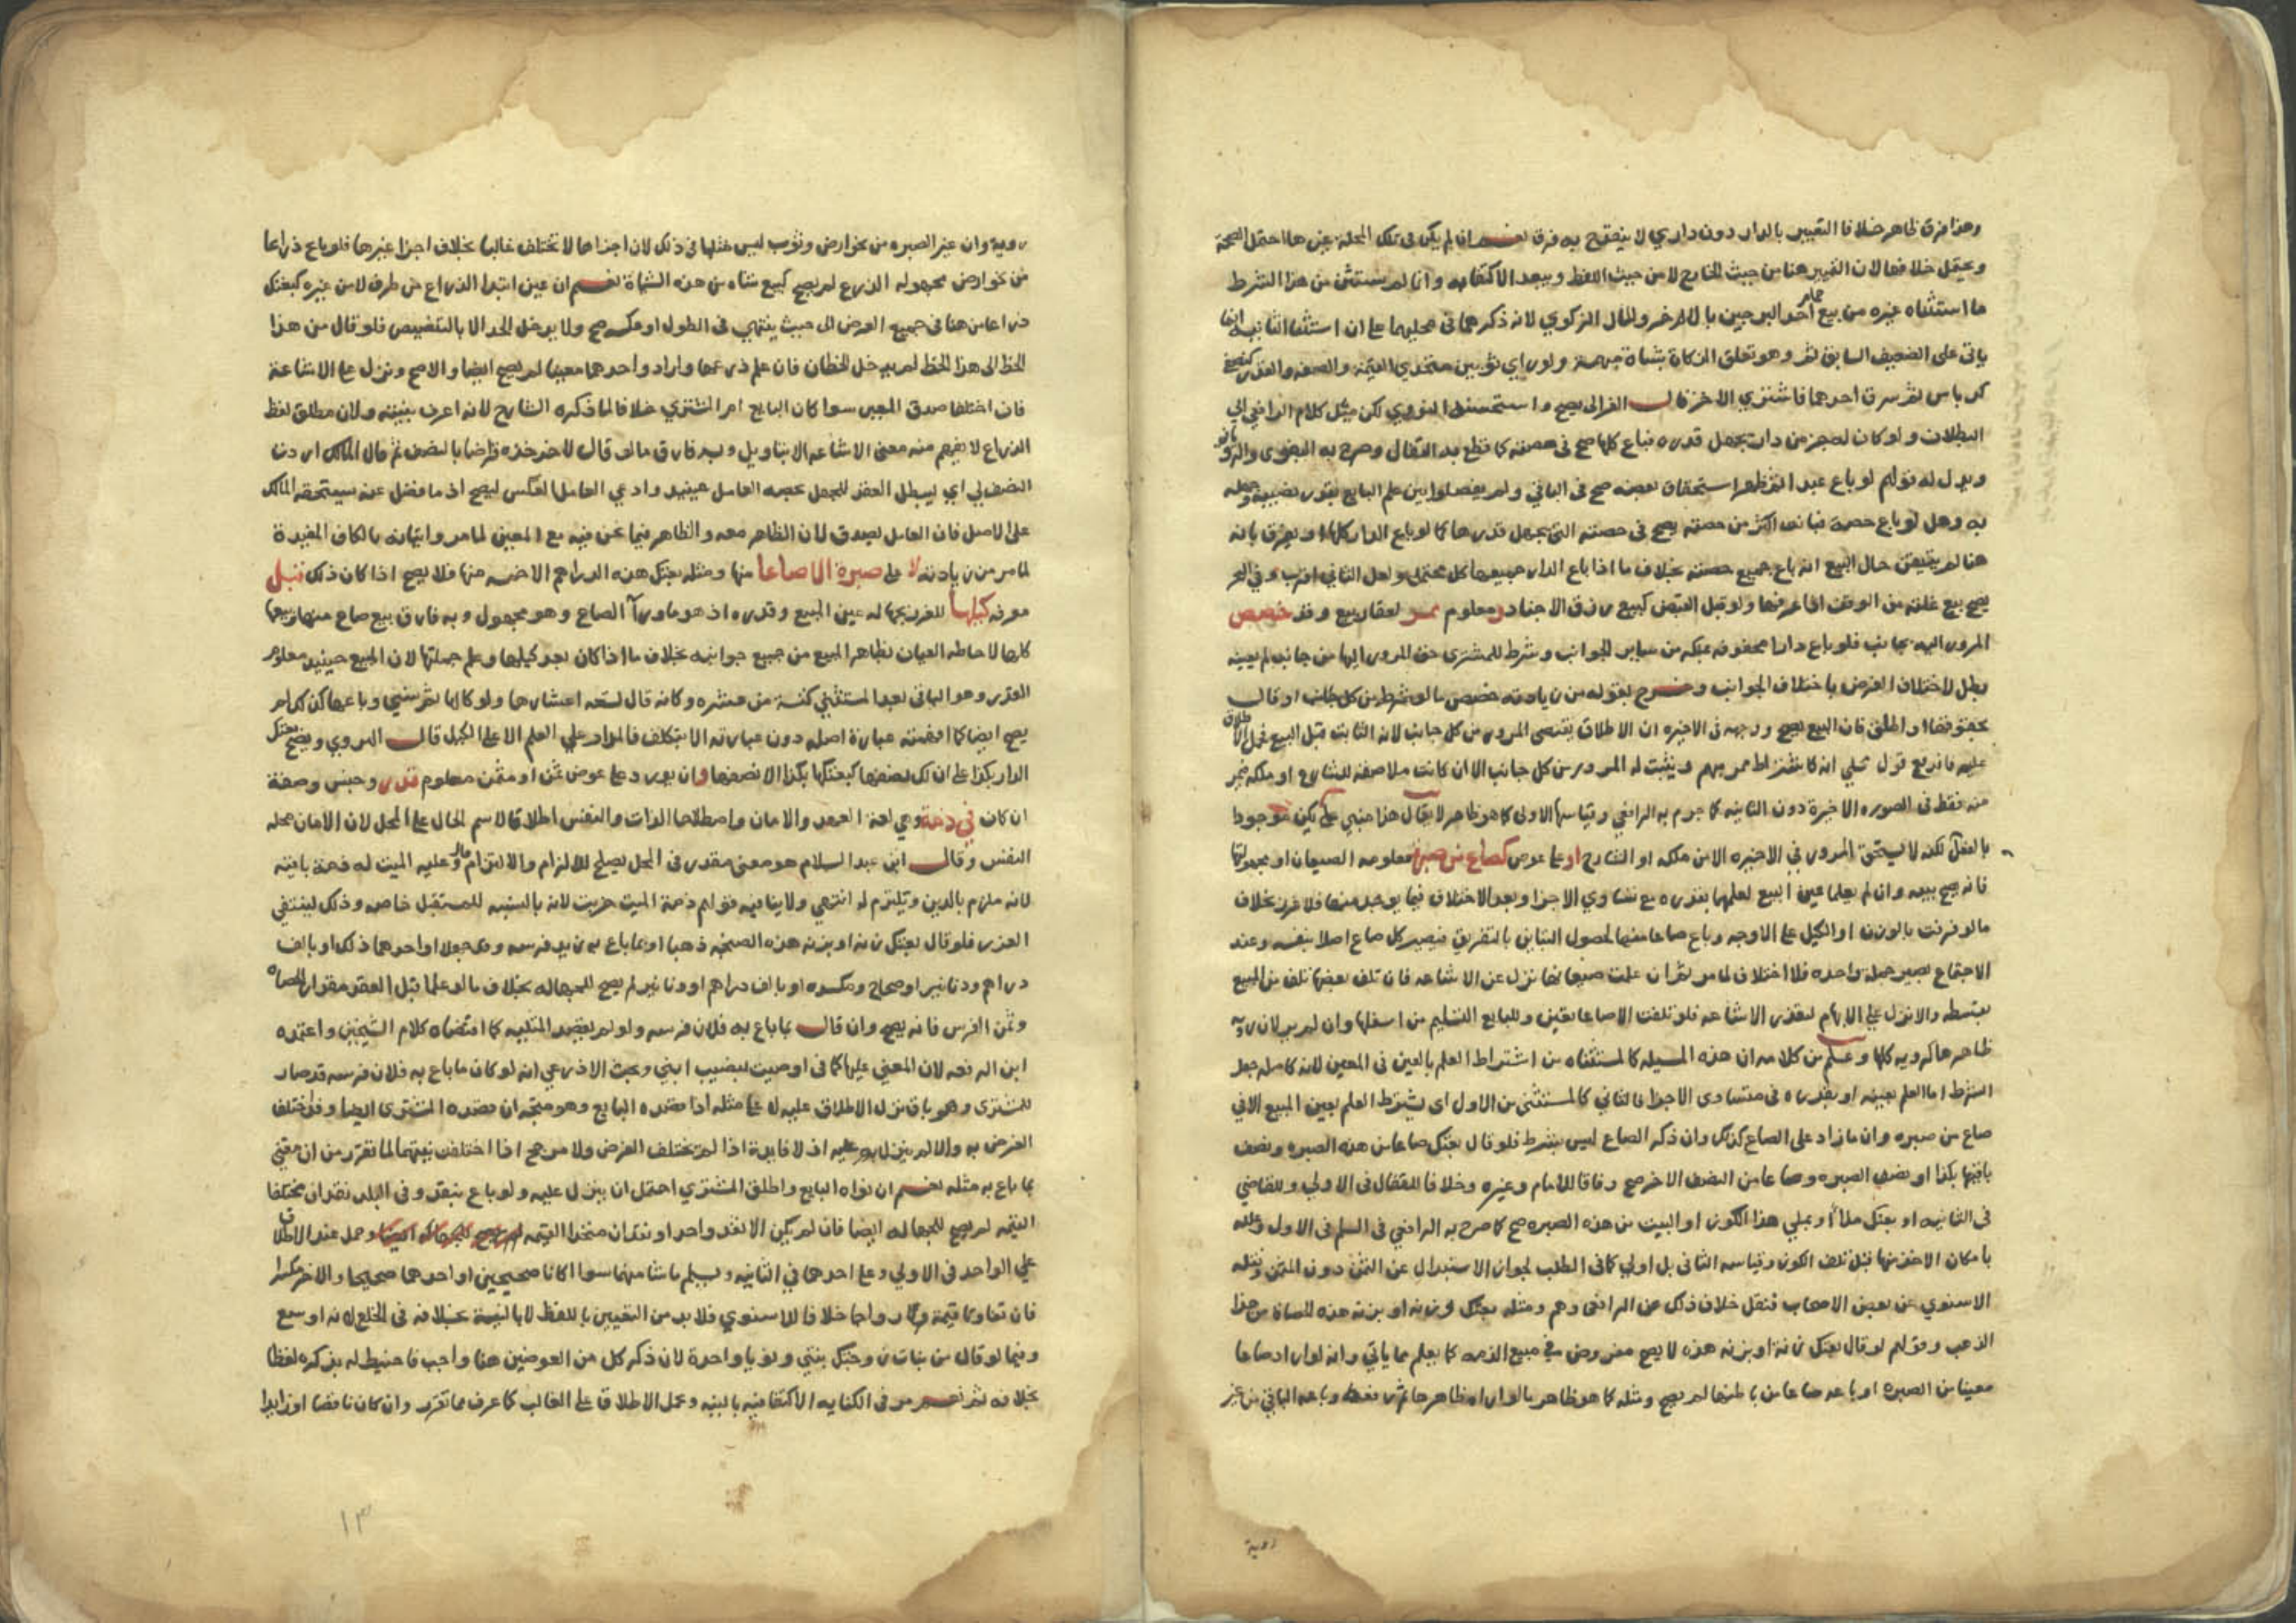 وهذا فرق ظاهر خلافا التعبير بالدار دون داري لا ينقدح به فرق نعم ان لم يكن في تلك المحلة غيرها احتمل الصحة
ويحتمل خلافها لان التغيير هنا من حيث الخارج لا من حيث اللفظ ويبعد الاكتفا به وانما لم يستثن من هذا الشرط
ما استثناه غيره من بيع احد البرجين بالاخر والمال الزكوي لانه ذكرهما في محلهما على ان استثنا الثانية انما
ياتي على الضعيف السابق ثم وهو تعلق الزكاة بشاة مبهمة ولو راي ثوبين متحدي القيمة والصفة والقدر كنصفي
كرباس ثم سرق احدهما فاشتري الاخر قال الغزالي يصح واستحسنه النووي لكن ميل كلام الرافعي الي
البطلان ولو كان له جزء من دار يجهل قدره فباع كلها صح في حصته كما قطع به القفال وصرح به البغوي والروياني
ويدل له قولهم لو باع عبدا ثم ظهر استحقاق بعضه صح في الباقي ولم يفصلوا بين علم البايع بقدر نصيبه وجهله
به وهل لو باع حصة فبانت اكثر من حصته يصح في حصته التي يجهل قدرها كما لو باع الدار كلها او يفرق بانه
هنا لم يتيقن حال البيع انه باع جميع حصته بخلاف ما اذا باع الدار جميعها كل محتمل ولعل الثاني اقرب وفي البحر
يصح بيع غلته من الوقف اذا عرفها ولو قبل القبض كبيع رزق الاجناد ومعلوم ممر لعقار بيع وقد خصص
المرور اليه بجانب فلو باع دارا محفوفة بملكه من ساير الجوانب وشرط للمشتري حق المرور اليها من جانب لم يعينه
بطل لاختلاف الغرض باختلاف الجوانب وخرج بقوله من زيادته خصص ما لو شرط من كل جانب او قال
بحقوقها او اطلق فان البيع يصح ووجهه في الاخيرة ان الاطلاق يقتضي المرور من كل جانب لانه الثابت قبل البيع فحمل الاطلاق
عليه فاندفع قول شيخي انه كاشتراط ممر مبهم ويثبت له المرور من كل جانب الا ان كانت ملاصقة للشارع او ملكه فيمر
منه فقط في الصورة الاخيرة دون الثانية كما جزم به الرافعي وقياسها الاولي كما هو ظاهر لا يقال هذا مبني علي يكن موجودا
بالفعل لكنه لا يستحق المرور في الاخيرة الا من ملكه او الشارع او علي عوض كصاع من صبرة معلومة الصيعان او مجهولتها
فانه يصح بيعه وان لم يعلما عين البيع لعلمهما بقدره مع تساوي الاجزا وبعد الاختلاف فيما يوخذ منها فلا غرر بخلاف
ما لو فرقت بالوزن او الكيل على الاوجه وباع صاعا منها لحصول التباين بالتفريق فيصير كل صاع اصلا بنفسه وعند
الاجتماع يصير جملة واحدة فلا اختلاف لما مر ثم ان علمت صيعانها نزل عن الاشاعة فان تلف بعضها تلف من المبيع
بقسطه والا نزل علي الابهام لتعذر الاشاعة فلو تلفت الا صاعا تعين وللبايع التسليم من اسفلها وان لم ير لان روية
ظاهرها كروية كلها وعلم من كلامه ان هذه المسيلة كالمستثناة من اشتراط العلم بالعين في المعين لانه كاصله جعل
الشرط اما العلم بعينه او بقدره في متساوي الاجزا فالثاني كالمستثني من الاول اي يشترط العلم بعين المبيع الا في
صاع من صبرة وان ما زاد على الصاع كذلك وان ذكر الصاع ليس بشرط فلو قال بعتك صاعا من هذه الصبرة ونصف
باقيها بكذا او نصف الصبرة وصاعا من النصف الاخر صح وفاقا للامام وغيره وخلافا للقفال في الاولي وللقاضي
في الثانية او بعتك ملا او بملي هذا الكوز او البيت من هذه الصبرة صح كما صرح به الرافعي في السلم في الاول وعلله
بامكان الاخذ منها قبل تلف الكوز وقياسه الثاني بل اولي كما في الطلب لجواز الاستبدال عن الثمن دون المثمن ونقله
الاسنوي عن بعض الاصحاب فنقل خلاف ذلك عن الرافعي وهم ومثله بعتك وزنه او بزنة هذه الحصاة من هذا
الذهب وقولهم لو قال بعتك زنة او بزنة هذه لا يصح مفروض في مبيع الذمة كما يعلم مما ياتي وانه لو اراد صاعا
معينا من الصبرة او باعه صاعا من باطنها لم يصح ومثله كما هو ظاهر ما لو اراه ظاهرها وباعه الباقي من غير
روية
روية وان غير الصبرة من نحو ارض وثوب ليس مثلها في ذلك لان اجزاها لا تختلف غالبا بخلاف اجزا غيرها فلو باع ذراعا
من نحو ارض مجهولة الذرع لم يصح كبيع شاه من هذه الشياة نعم ان عين ابتدا الذراع من طرف لا من غيره كبعتك
ذراعا من هنا في جميع العرض الى حيث ينتهي في الطول او عكسه صح ولا يدخل الحد الا بالتنصيص فلو قال من هذا
الخط الى هذا الخط لم يدخل الخطان فان علم ذرعها واراد واحدهما معينا لم يصح ايضا والا صح ونزل على الاشاعة
فان اختلفا صدق المعين سوا كان البايع ام المشتري خلافا لما ذكره الشارح لانه اعرف بنيته ولان مطلق لفظ
الذراع لا يفهم منه معني الاشاعة الا بتاويل وبه فارق ما لو قال لاخر خذه قراضا بالنصف ثم قال المالك اردت
النصف لي اي ليبطل العقد للجهل بحصه العامل حينيذ وادعي العامل العكس ليصح اذ ما فضل عنه يستحقه المالك
على الاصل فان العامل يصدق لان الظاهر معه والظاهر فيما نحن فيه مع المعين لما مر واتيانه بالكاف المفيدة
لما مر من زيادته لا على صبرة الا صاعا منها ومثله بعتك هذه الدراهم الا خمسه منها فلا يصح اذا كان ذلك قبل
معرفه كيلها للغرر بجهاله عين المبيع وقدره اذ هو ما ورآ الصاع وهو مجهول وبه فارق بيع صاع منها وبيعها
كلها لاحاطه العيان بظاهر المبيع من جميع جوانبه بخلاف ما اذا كان بعد كيلها وعلم جملتها لان المبيع حينيذ معلوم
القدر وهو الباقي بعد المستثني كتسعة من عشره وكانه قال تسعه اعشارها ولو كالها ثم نسي وباعها كذلك لم
يصح ايضا كما افهمته عبارة اصله دون عبارته الا بتكلف فالمدار علي العلم لا على الكيل قال الهروي ويصح بعتك
الدار بكذا على ان لك نصفها كبعتكها بكذا الا نصفها وان يورد على عوض ثمن او مثمن معلوم قدر وجنس وصفة
ان كان في ذمة وهي لغة العهد والامان واصطلاحا الذات والنفس اطلاقا لاسم الحال على المحل لان الامان محله
النفس وقال ابن عبد السلام هو معني مقدر في المحل يصلح للالزام والالتزام قال وعليه الميت له ذمة باقية
لانه ملزم بالدين ويلتزم له انتهي ولا ينافيه قولهم ذمة الميت خربت لانه بالنسبه للمستقبل خاصه وذلك لينتفي
الغرر فلو قال بعتك زنة او بزنة هذه الصنجة ذهبا او بما باع به زيد فرسه وقد جهلا او احدهما ذلك او بالف
دراهم ودنانير او صحاح ومكسره او بالف دراهم او دنانير لم يصح للجهاله بخلاف ما لو علما قبل العقد مقدار الحصاه
وثمن الفرس فانه يصح وان قال بما باع به فلان فرسه ولو لم يقصد المثليه كما اقتضاه كلام الشيخين واعتمده
ابن الرفعه لان المعني عليها كما في اوصيت بنصيب ابني وبحث الاذرعي انه لو كان ما باع به فلان فرسه قد صار
للمشتري وهو باق نزل الاطلاق عليه لا على مثله اذا قصده البايع وهو متجه ان قصده المشتري ايضا وقد اختلف
الغرض به والا لم ينزل عليه اذ لا فايدة اذا لم يختلف الغرض ولا مرجح اذا اختلفت نيتهما لما تقرر من ان معني
بما باع به مثله نعم ان نواه البايع واطلق المشتري احتمل ان ينزل عليه ولو باع بنقد وفي البلد نقدان مختلفا
القيمه لم يصح للجهاله ايضا فان لم يكن الا نقد واحد او نقدان متحدا القيمه لم يصح للجهاله ايضا وحمل عند الاطلاق
علي الواحد في الاولي وعلى احدهما في الثانيه ويسلم ما شا منهما سوا اكانا صحيحين او احدهما صحيحا والاخر مكسرا
فان تفاوتا قيمة ورواجا خلافا للاسنوي فلا بد من التعيين باللفظ لا بالنية بخلافه في الخلع لانه اوسع
وفيما لو قال من بنات زوجتك بنتي ونويا واحدة لان ذكر كل من العوضين هنا واجب فاحتيط له بذكره لفظا
بخلافه ثم نعم مر في الكنايه الاكتفا فيه بالنيه وحمل الاطلاق على الغالب كما عرف مما تقرر وان كان ناقصا او زايدا
١٣